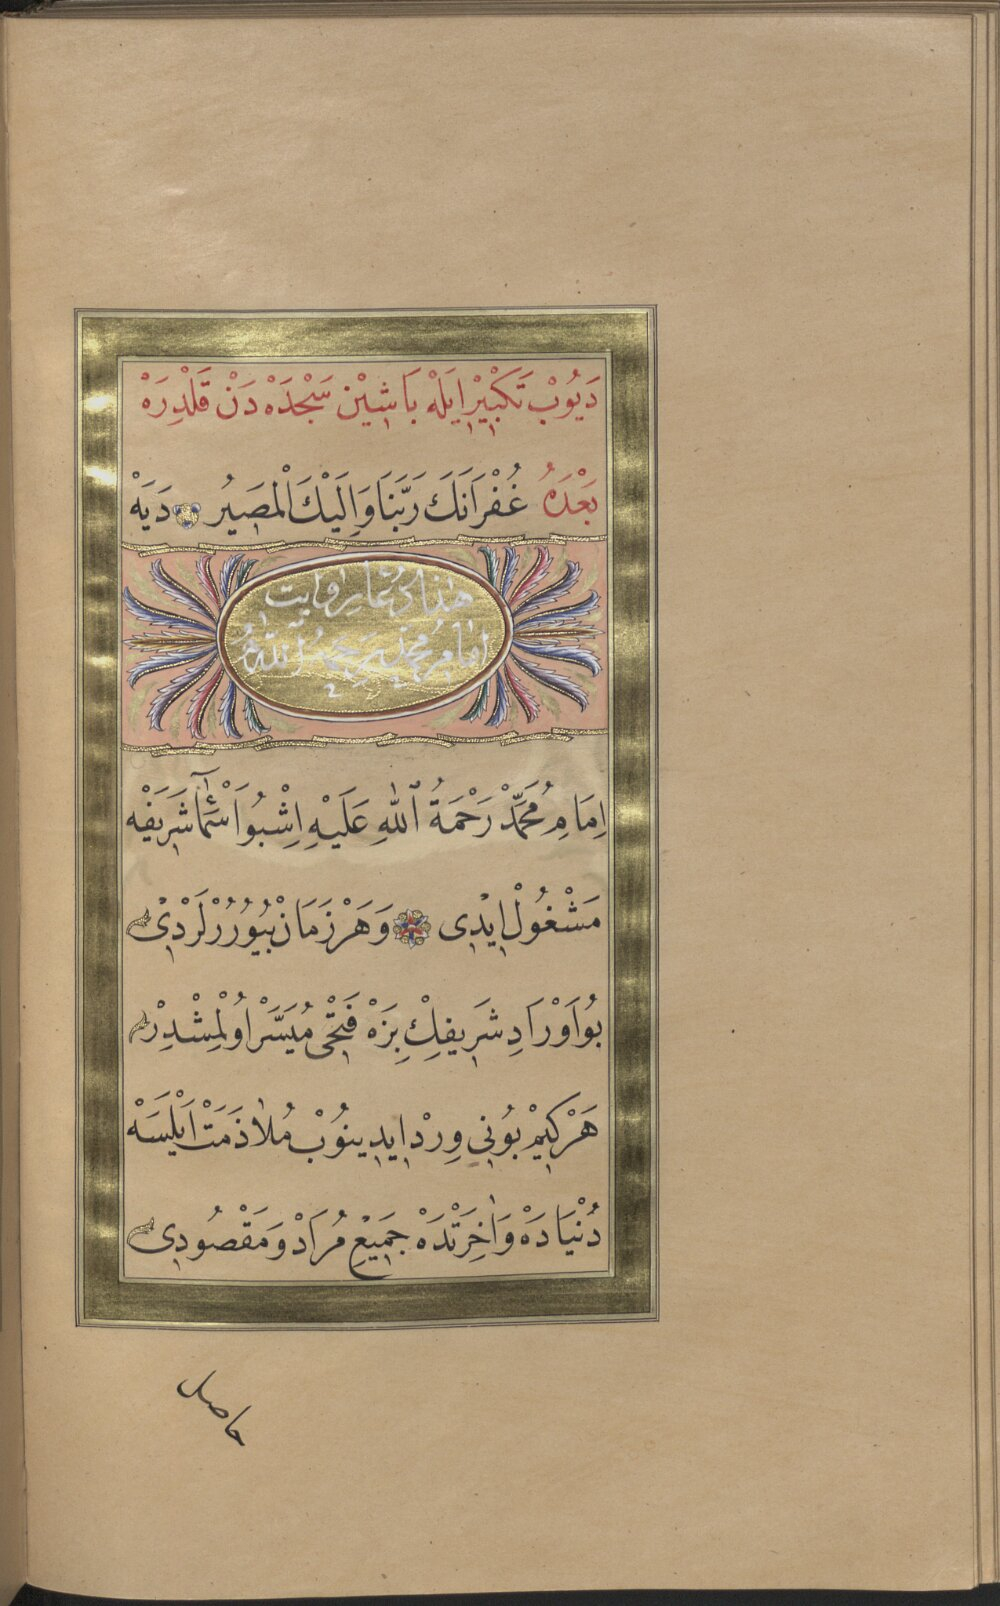 دَيُوبْ تَكْبِيْرْ اِيَلَهْ بَاشِيْن سَجْدَهْ دَنْ قَلْدِرَهْ
بَعْدَهُ غُفْرَانَكَ رَبَّنَا وَاِلَيْكَ الْمَصِيُر دَيَهْ
هٰذَا دُعَا رِوَايت
اِمَامِ مُحَمَّد رَحِمَهُ اللّٰهُ
اِمَامِ مُحَمَّدْ رَحْمَةُ ٱللّٰهِ عَلَيْهِ اِشْبُو اَسْمَآءِ شَرَيَفْه
مَشْغُولْ ايْدِى وَهَرْ زَمَانْ بُيُورُرْلَرْدِىْ
بُو اَوْرَادِ شَرِيفِكْ بِزَهْ فَتْحِى مُيَسَّرْ اُولْمِشْدِرْ
هَرْ كِيمْ بُونِى وِرْد اِيدِينُوبْ مُلاٰذَمَتْ اَيْلَسَهْ
دُنْيَادَهْ وَاٰخِرَتْدَهْ جَمِيْعِ مُرَادْ وَمَقْصُودِى
حاصل